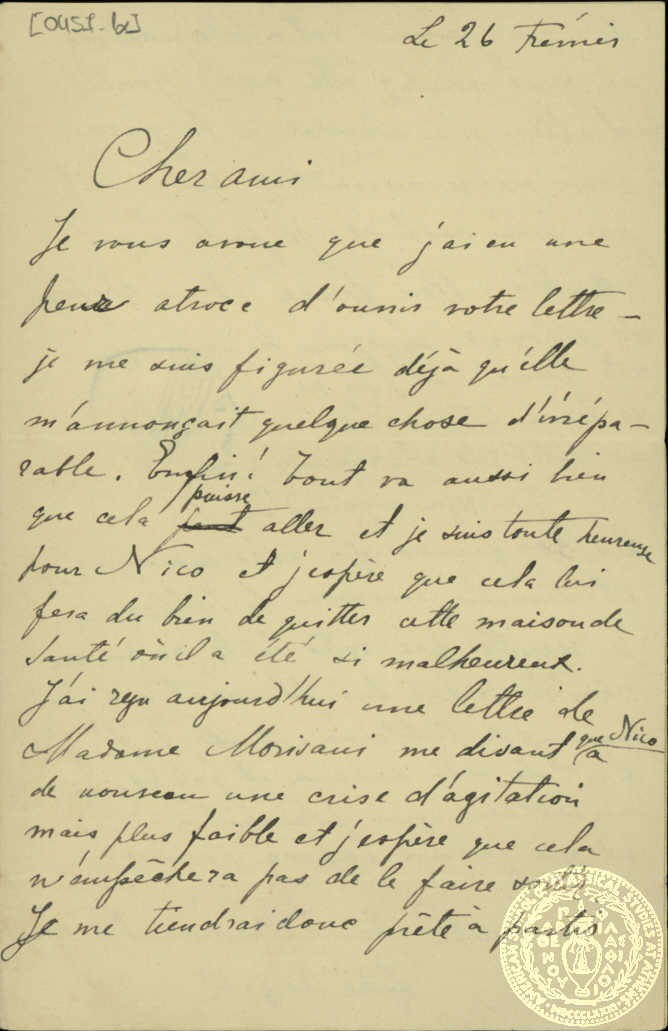 Le 26 Février
Cher ami
Je vous avoue que j'ai eu une
peur atroce d'ouvrir votre lettre –
je me suis figurée déjà qu'elle
m'annonçait quelque chose d'irrépa–
rable. Enfin! Tout va aussi bien
que cela puisse aller et je suis toute heureuse
pour Nico et j'espère que cela lui
fera du bien de quitter cette maison de
santé où il a été si malheureux.
J'ai reçu aujourd'hui une lettre de
Madame Morisani me disant que Nico a
de nouveau une crise d'agitation
mais plus faible et j'espère que cela
n'empêchera pas de le faire sortir.
Je me tiendrai donc prête à partir
AMERICAN SCHOOL OF CLASSICAL STUDIES AT ATHENS
MDCCCLXXXI